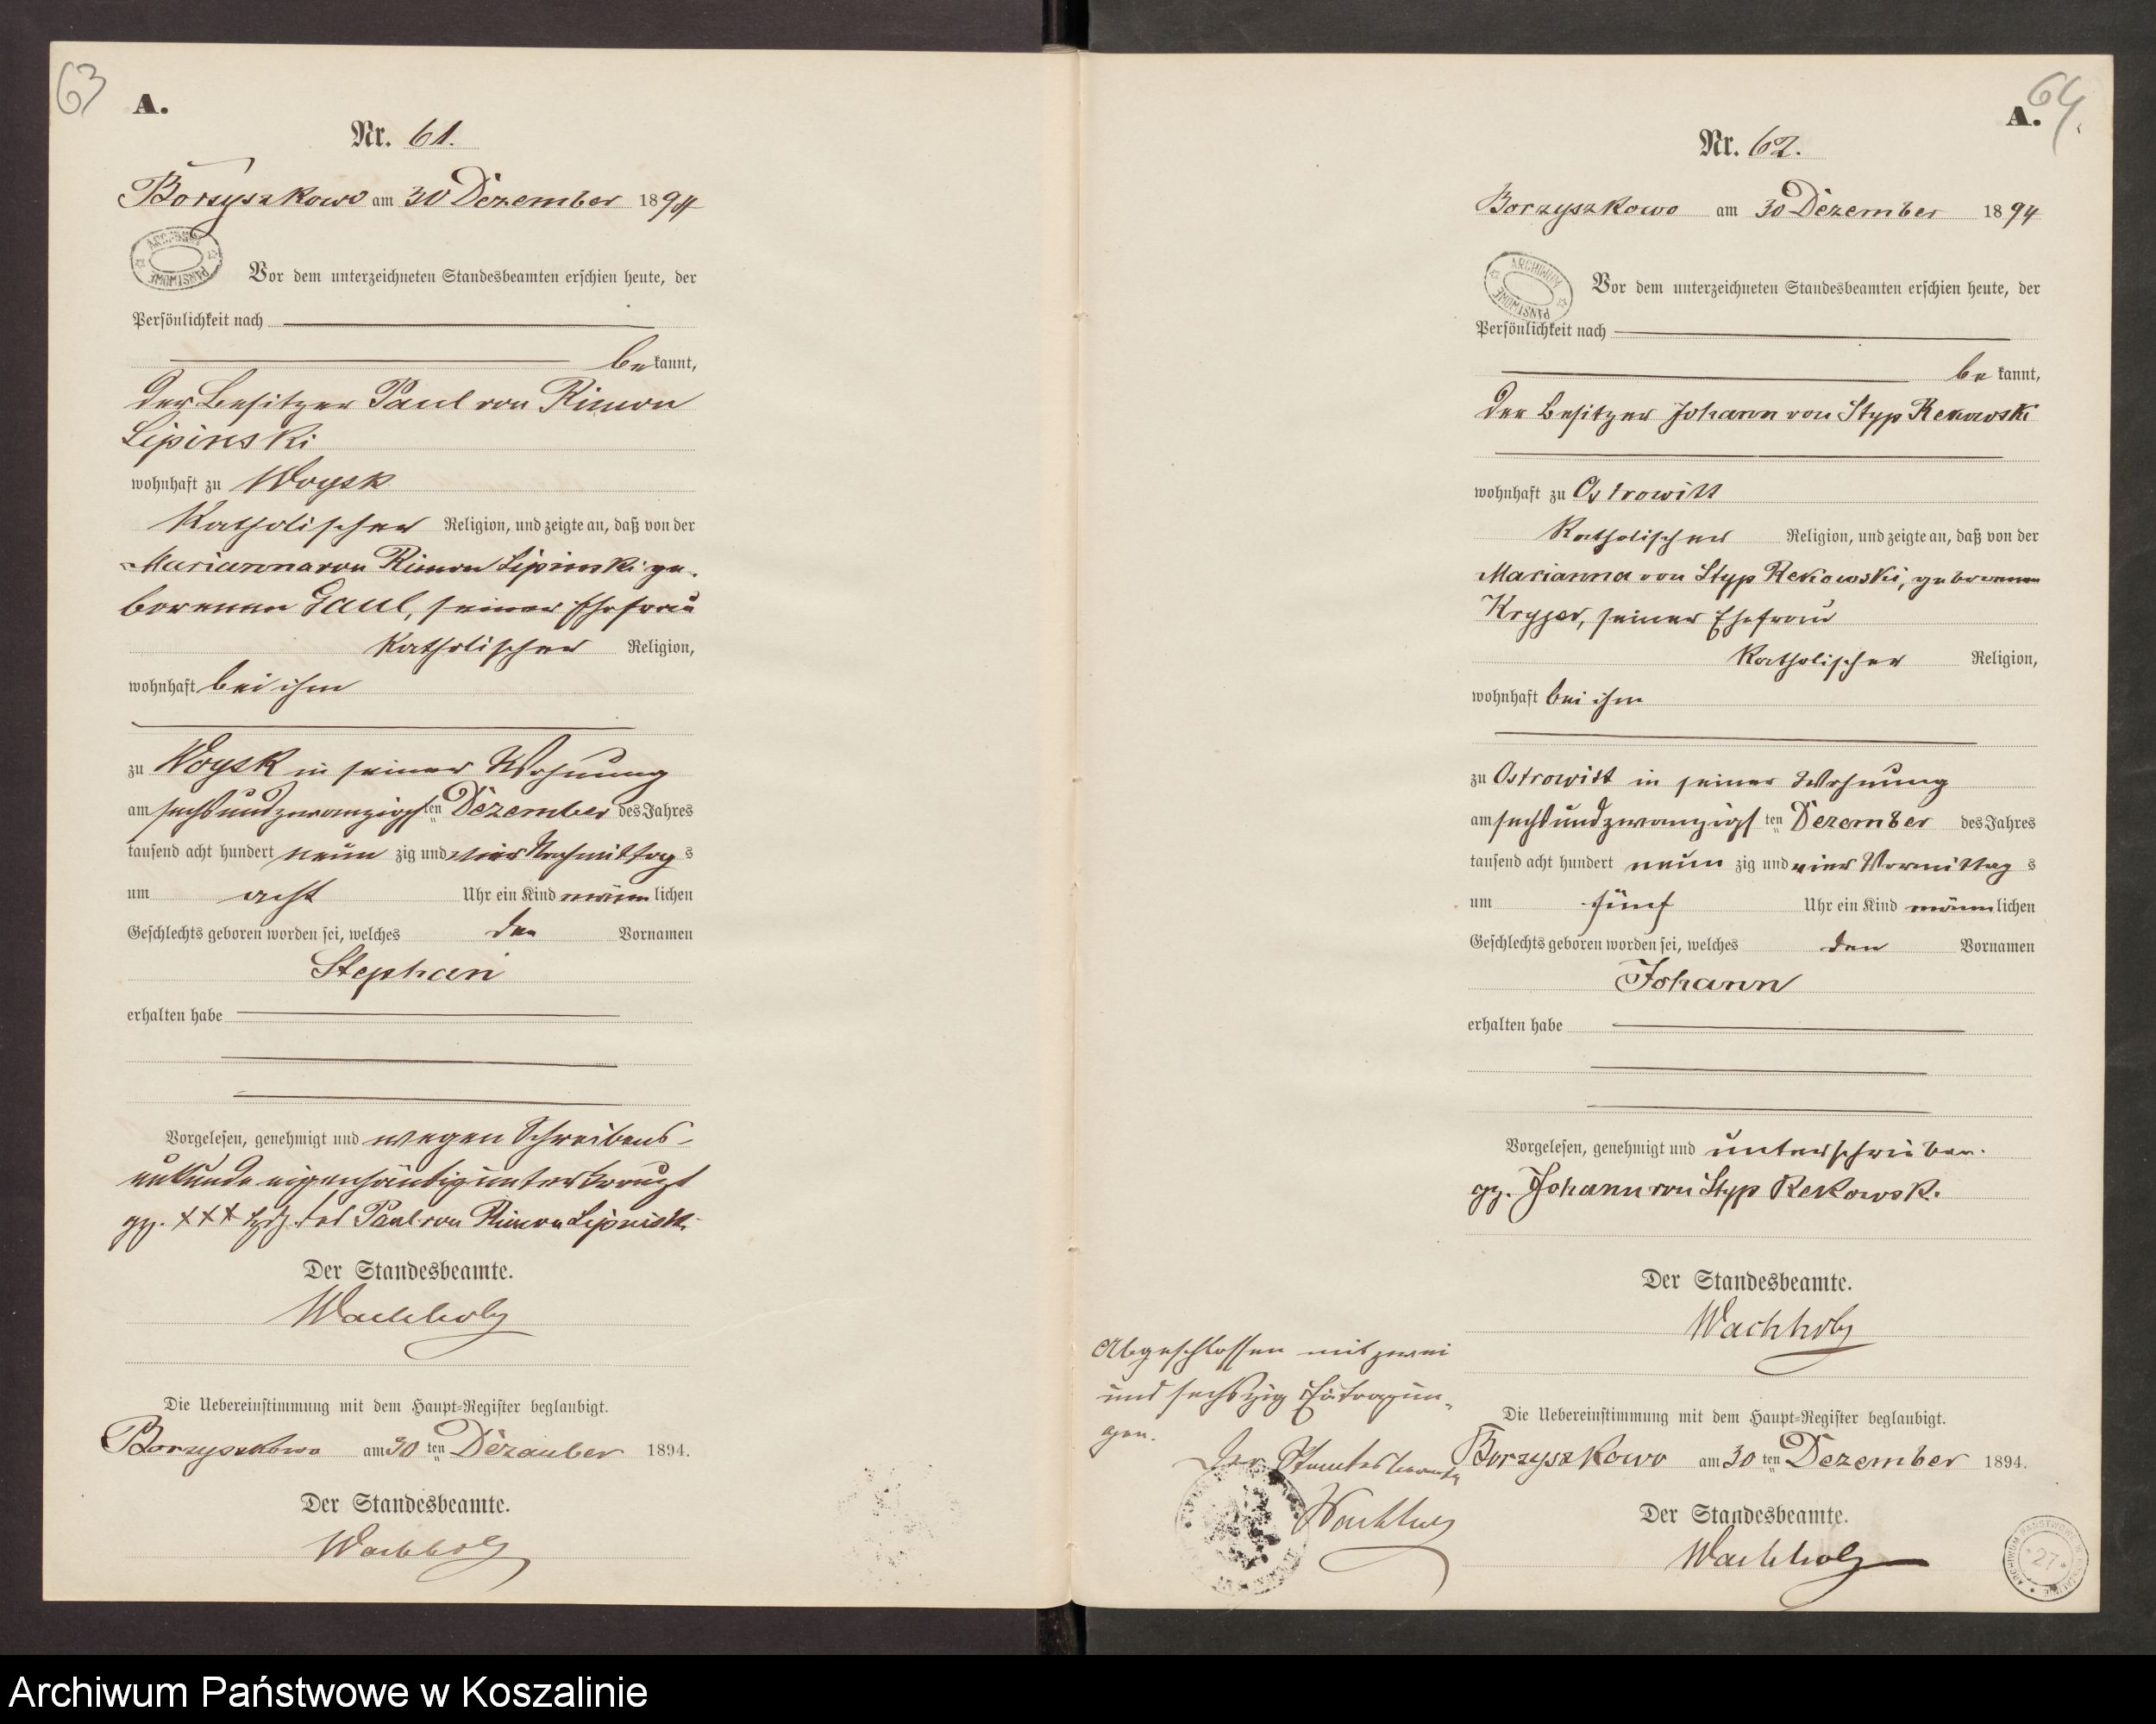 63
A.
Nr. 61.
Borzyszkowo am 30 Dezember 1894
ARCHIWUM PAŃSTWOWE
Vor dem unterzeichneten Standesbeamten erschien heute, der
Persönlichkeit nach
bekannt,
der Besitzer Paul von Rimon
Lipinski
wohnhaft zu Woysk
katholischer Religion, und zeigte an, daß von der
Marianna von Rimon Lipinski ge-
borenen Gaul, seiner Ehefrau
katholischer Religion,
wohnhaft bei ihm
zu Woysk in seiner Wohnung
am sechsundzwanzigsten Dezember des Jahres
tausend acht hundert neunzig und vier Nachmittags
um acht Uhr ein Kind männlichen
Geschlechts geboren worden sei, welches den Vornamen
Stephan
erhalten habe
Vorgelesen, genehmigt und wegen Schreibens-
unkunde eigenhändig unterkreuzt
gz. XXX Hdz. des Paul von Rimon Lipinski
Der Standesbeamte.
Wachholz
Die Uebereinstimmung mit dem Haupt-Register beglaubigt.
Borzyszkowo am 30ten Dezember 1894.
Der Standesbeamte.
Wachholz
64
A.
Nr. 62.
Borzyszkowo am 30 Dezember 1894
ARCHIWUM PAŃSTWOWE
Vor dem unterzeichneten Standesbeamten erschien heute, der
Persönlichkeit nach
bekannt,
der Besitzer Johann von Styp Rekowski
wohnhaft zu Ostrowitt
katholischer Religion, und zeigte an, daß von der
Marianna von Styp Rekowski, geborenen
Kryger, seiner Ehefrau
katholischer Religion,
wohnhaft bei ihm
zu Ostrowitt in seiner Wohnung
am sechsundzwanzigsten Dezember des Jahres
tausend acht hundert neunzig und vier Vormittags
um fünf Uhr ein Kind männlichen
Geschlechts geboren worden sei, welches den Vornamen
Johann
erhalten habe
Vorgelesen, genehmigt und unterschrieben.
gz. Johann von Styp Rekowski
Der Standesbeamte.
Wachholz
Die Uebereinstimmung mit dem Haupt-Register beglaubigt.
Borzyszkowo am 30ten Dezember 1894.
Der Standesbeamte.
Wachholz
Abgeschlossen mit zwei
und sechszig Eintragun-
gen.
Der Standesbeamte
Wachholz
27
Archiwum Państwowe w Koszalinie